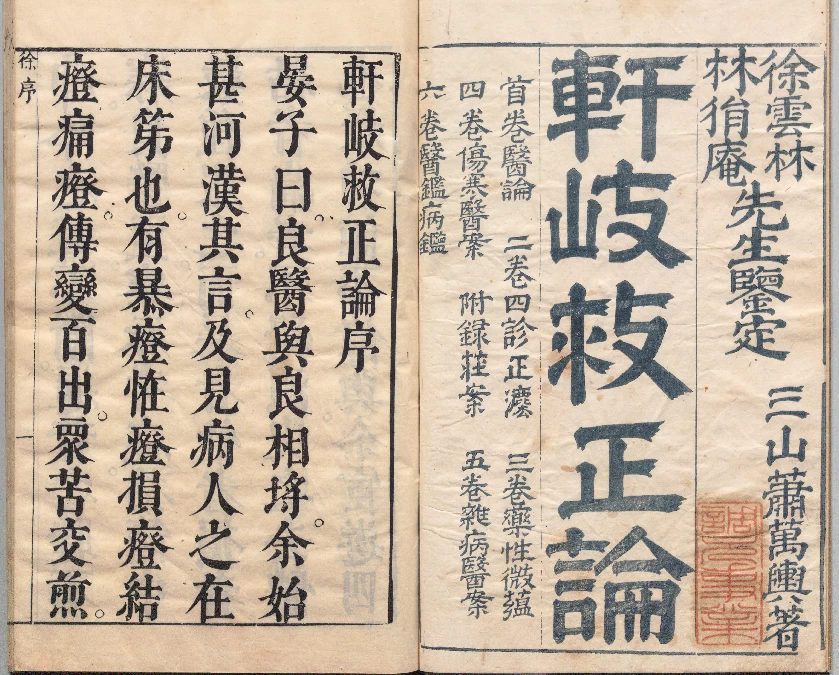 徐雲林
林㣲庵
先生鑒定 三山蕭萬輿著
軒岐救正論
首卷醫論 二卷四診正灋 三卷藥性微蘊
四卷傷寒醫案 附錄桂案 五卷雜病醫案
六卷醫鑑病鑑
軒岐救正論序
晏子曰良醫與良相埒。余始
甚河漢其言。及見病人之在
床笫也。有暴癥恠癥損癥結
癥痛癥傳變百出。眾苦交煎。
徐序
一